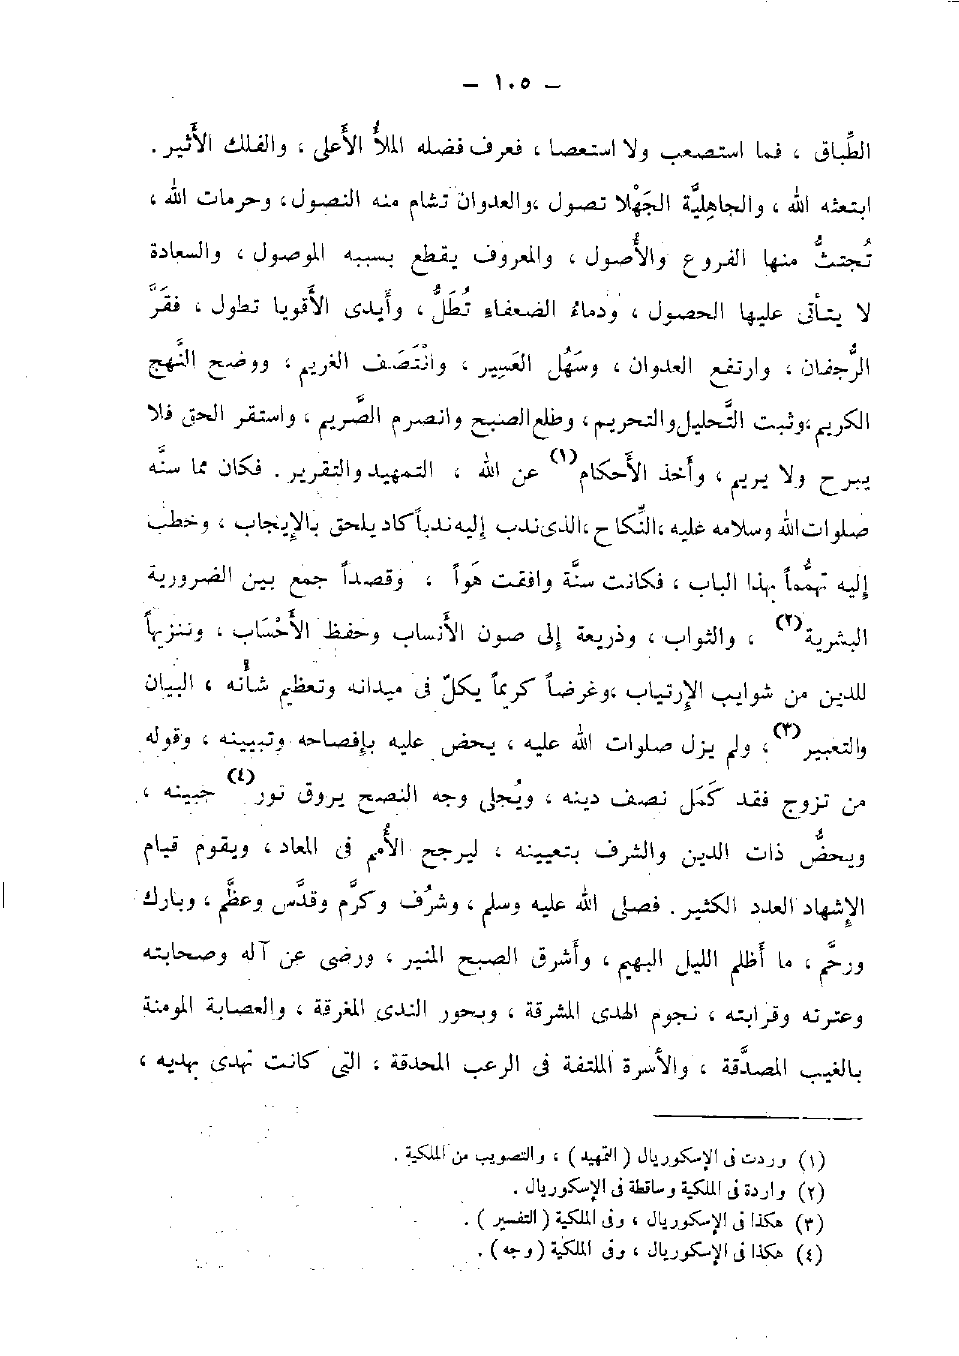 – ١٠٥ –
الطِّباق ، فما استصعب ولا استعصا ، فعرف فضله الملأُ الأَعلى ، والفلك الأَثير .
ابتعثه الله ، والجاهِليَّة الجَهْلا تصول ،والعدوان تشام منه النصول ، وحرمات الله ،
تُجتثُّ منها الفروع والأُصول ، والمعروف يقطع بسببه الموصول ، والسعادة
لا يتأتى عليها الحصول ، ودماءُ الضعفاءِ تُطَلُّ ، وأَيدى الأَقويا تطول ، فقَرَّ
الرُّجفان ، وارتفع العدوان ، وسَهُل العَبِير ، وانْتَصَف الغريم ، ووضح النَّهج
الكريم ،وثبت التَّحليل والتحريم ، وطلع الصبح وانصرم الصَّريم ، واستقر الحق فلا
يبرح ولا يريم ، وأَخذ الأَحكام(١) عن الله ، التمهيد والتقرير . فكان مما سنَّه
صلوات الله وسلامه عليه ،النِّكاح ،الذى ندب إليه ندباً كاد يلحق بالإيجاب ، وخطب
إليه تهمُّماً بهذا الباب ، فكانت سنَّة وافقت هَواً ، وقصداً جمع بين الضرورية
البشرية(٢) ، والثواب ، وذريعة إلى صون الأَنساب وحفظ الأَحْسَاب ، وتنزيهاً
للدين من شوايب الإرتياب ،وغرضاً كريماً يكلّ فى ميدانه وتعظيم شأْنه ، البيان
والتعبير(٣) ، ولم يزل صلوات الله عليه ، يحض عليه بإفصاحه وتبيينه ، وقوله
من تزوج فقد كَمَل نصف دينه ، ويُجلى وجه النصح يروق نور(٤) جبينه ،
ويحضُّ ذات الدين والشرف بتعيينه ، ليرجح الأُمم فى المعاد ، ويقوم قيام
الإشهاد العدد الكثير . فصلى الله عليه وسلم ، وشرُف وكرَّم وقدَّس وعظَّم ، وبارك
ورحَّم ، ما أَظلم الليل البهيم ، وأَشرق الصبح المنير ، ورضى عن آله وصحابته
وعترته وقرابته ، نجوم الهدى المشرقة ، وبحور الندى المغرقة ، والعصابة المومنة
بالغيب المصدَّقة ، والأسرة الملتفة فى الرعب المحدقة ، التى كانت تهدى بهديه ،
(١) وردت فى الإسكوريال ( التمهيد ) ، والتصويب من الملكية .
(٢) واردة فى الملكية وساقطة فى الإسكوريال .
(٣) هكذا فى الإسكوريال ، وفى الملكية ( التفسير ) .
(٤) هكذا فى الإسكوريال ، وفى الملكية ( وجه ) .